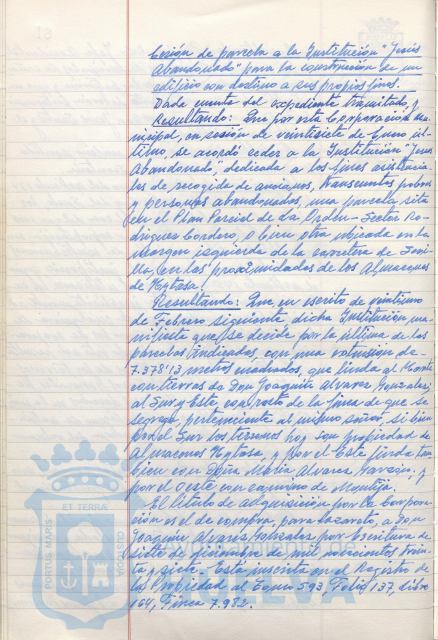 Cesión de parcela a la Institución "Jesús
Abandonado" para la construcción de un
edificio con destino a sus propios fines.
Dada cuenta del expediente tramitado, y
Resultando: Que por esta Corporación mu-
nicipal, en sesión de veintisiete de Enero úl-
timo, se acordó ceder a la Institución "Jesús
Abandonado", dedicada a los fines asistencia-
les de recogida de ancianos, transeuntes pobres
y personas abandonados, una parcela sita
en el Plan Parcial de La Orden - Sector Ro-
driguez Cordero, o bien otra ubicada en la
margen izquierda de la carretera de Sevi-
lla, en las proximidades de los Almacenes
de Hytasa.
Resultando: Que en escrito de veintiuno
de Febrero siguiente dicha Institución ma-
nifiesta que se decide por la última de las
parcelas indicadas, con una extensión de
7.378'13 metros cuadrados, que linda al Norte
con tierras de Don Joaquín Alvarez Gonzalez;
al Sur y Este con resto de la finca de que se
segrega, perteneciente al mismo señor, si bien
por el Sur los terrenos hoy son propiedad de
Almacenes Hytasa, y por el Este linda tam-
bien con Doña María Alvarez Garzón, y
por el Oeste con camino de Montija.
El título de adquisición por la Corpora-
ción es el de compra, para Lazareto, a Don
Joaquín Alvarez Gonzalez por Escritura de
siete de Diciembre de mil novecientos trein-
ta y siete. Está inscrita en el Registro de
la Propiedad al tomo 593, Folio 137, libro
164, Finca 7.982.
PORTUS MARIS
ET TERRAE
CUSTODIA
HUELVA